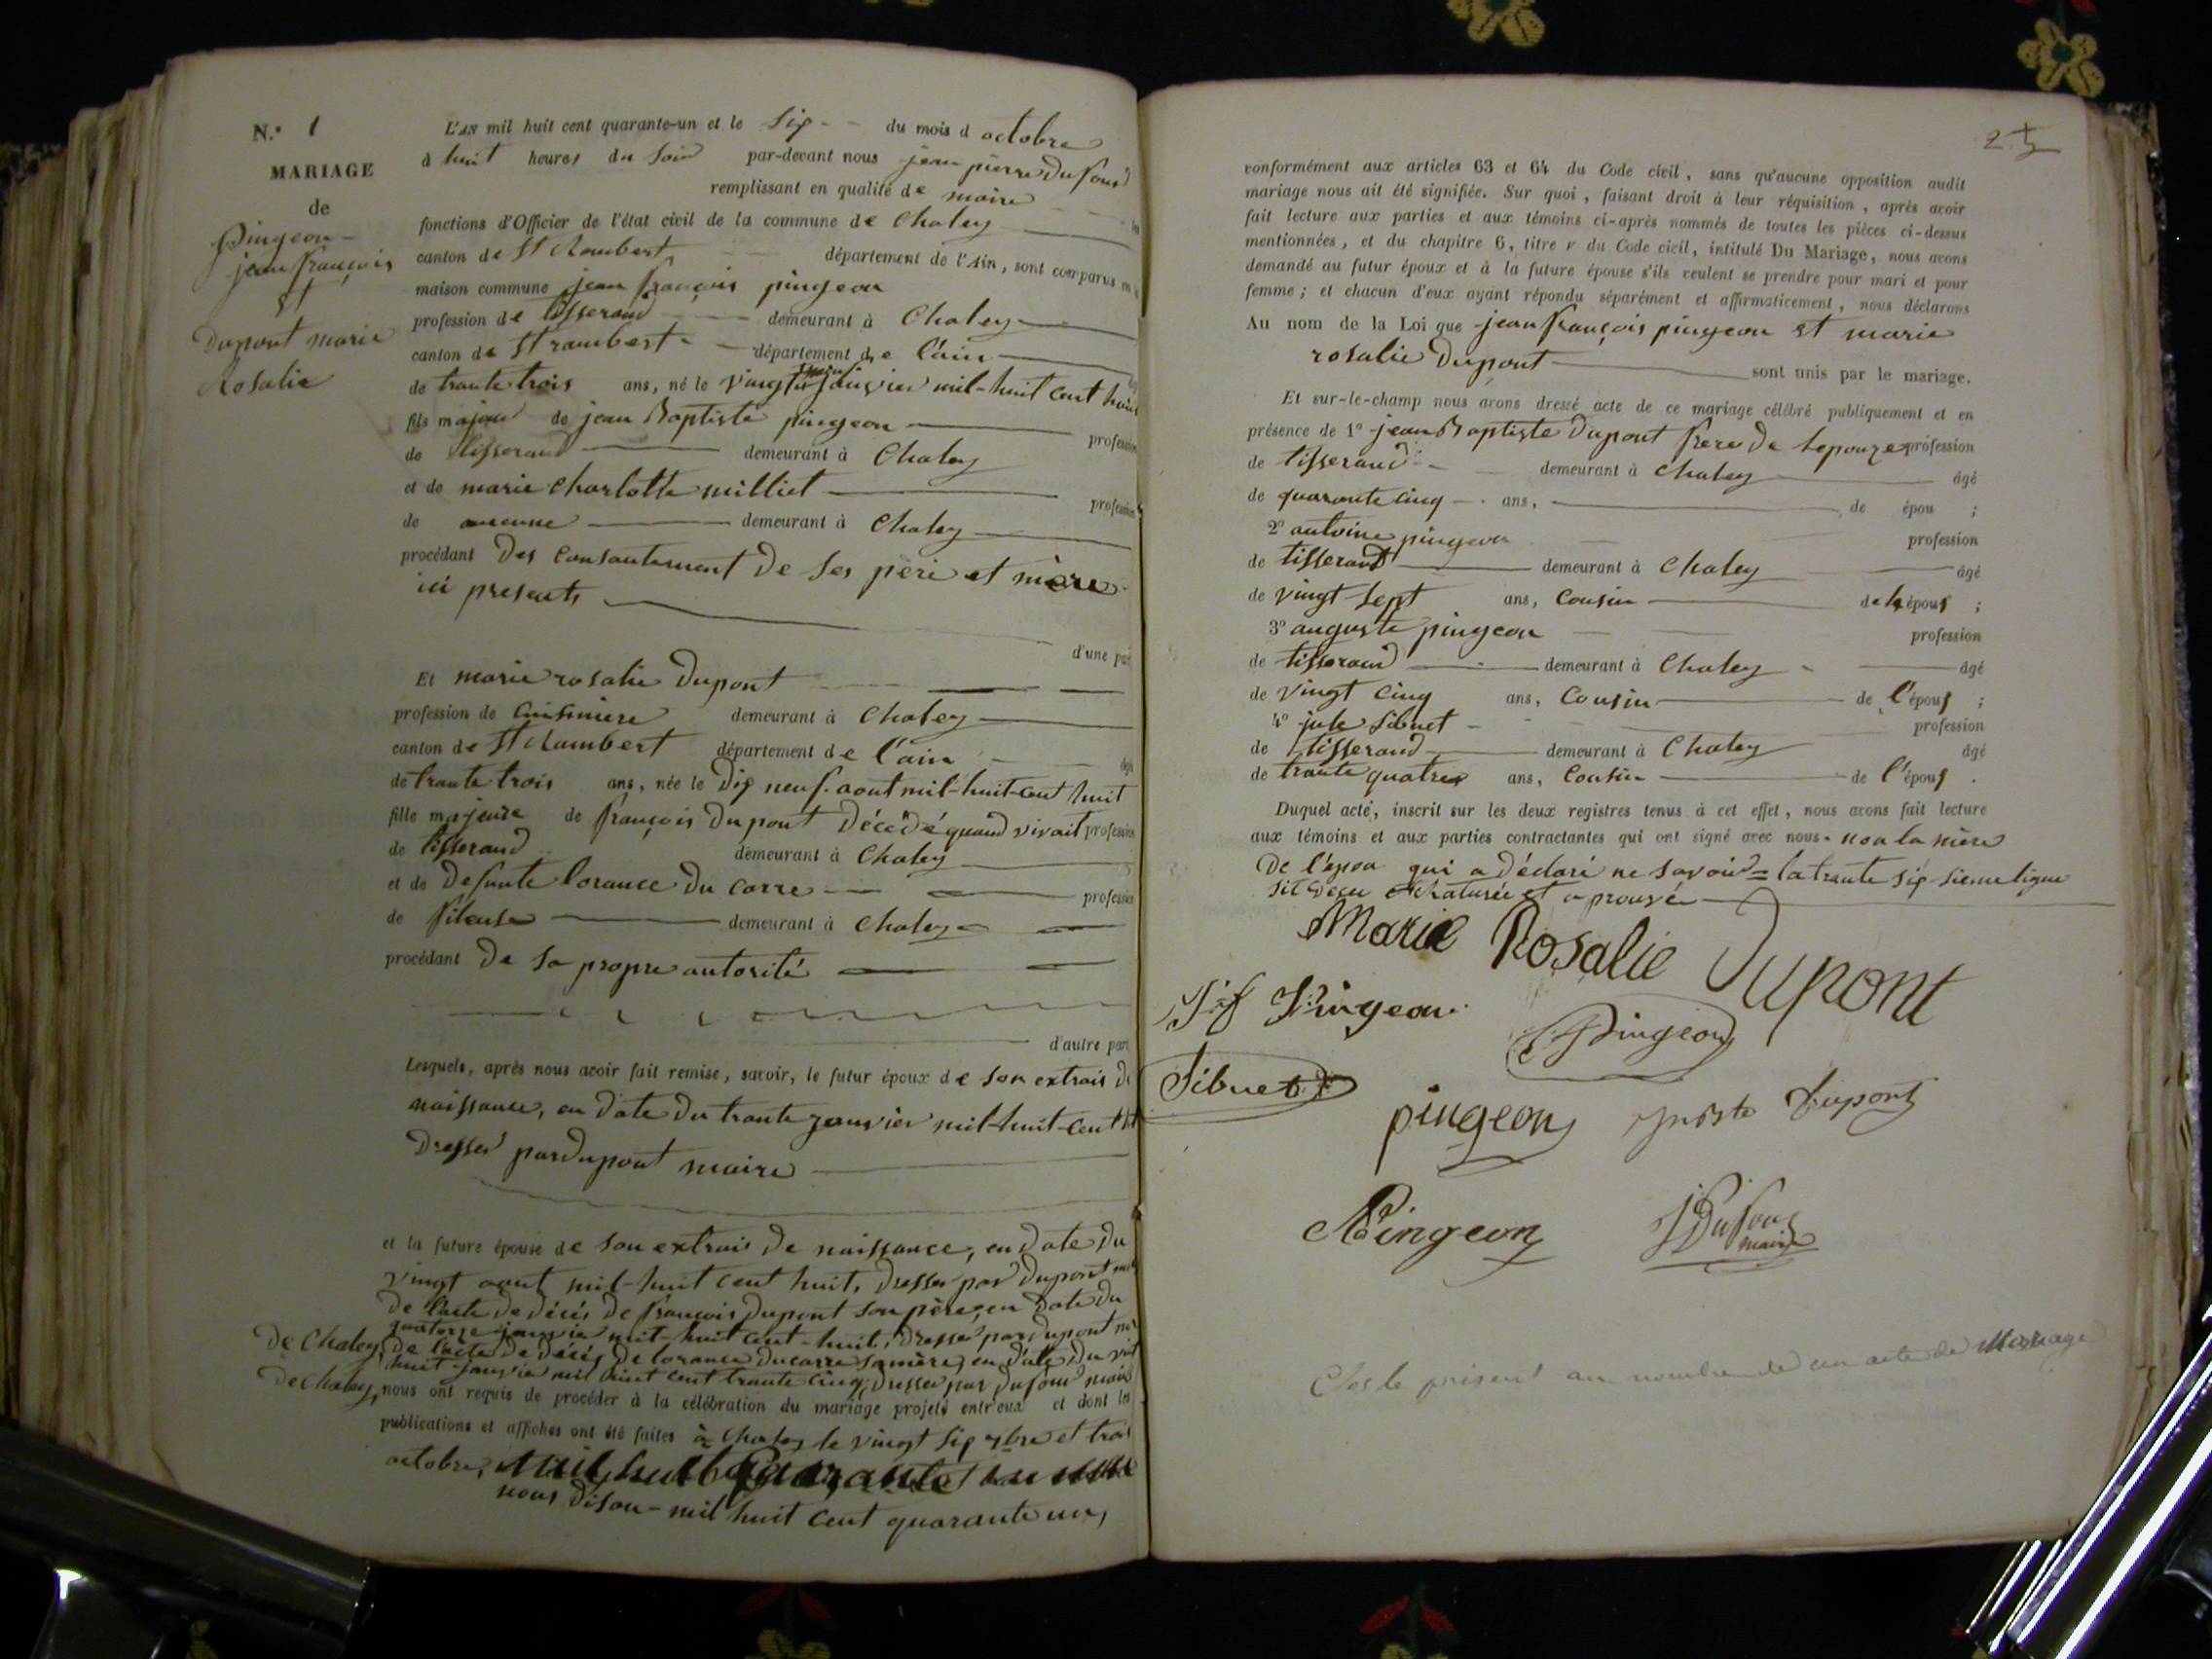 N.º 1
MARIAGE
de
Pingeon
jean françois
et
Dupont marie
Rosalie
L'AN mil huit cent quarante-un et le six du mois d octobre
à huit heures du soir par-devant nous jean pierre Dufour
remplissant en qualité de maire
fonctions d'Officier de l'état civil de la commune de Chaley
canton de St Rambert département de l'Ain, sont comparus en
maison commune jean françois pingeon
profession de tisserand demeurant à Chaley
canton de St rambert département de l'ain
de trante trois ans, né le vingt janvier mil-huit cent huit
fils majeur de jean Baptiste pingeon profession
de tisserand demeurant à Chaley
et de marie charlotte milliet profession
de aucune demeurant à Chaley
procédant Des consantement De ses père et mère
ici presents
d'une part
Et marie rosalie Dupont
profession de Cuisiniere demeurant à Chaley
canton de St Rambert département de l'ain
de trante trois ans, née le Dix neuf aout mil-huit-cent huit
fille majeure de françois Dupont Décédé quand vivait profession
de tisserand demeurant à Chaley
et de Defunte lorance Du carre profession
de fileuse demeurant à Chaley
procédant De sa propre autorité
d'autre part
Lesquels, après nous avoir fait remise, savoir, le futur époux de son extrais de
naissance, en Date Du trante janvier mil-huit-cent
Dresser par Dupont maire
et la future épouse de son extrais De naissance, en Date Du
vingt aout mil-huit cent huit, Dresser par Dupont
De l'acte De décés De françois Dupont son père, en Date Du
quatorze janvier mil-huit cent-huit, Dresser par Dupont
De Chaley, De l'acte De Décés De lorance Ducarre sa mère, en Date Du
huit janvier mil huit cent trante cinq, Dresser par Dufour maire
De Chaley, nous ont requis de procéder à la célébration du mariage projeté entr'eux et dont les
publications et affiches ont été faites à Chaley le vingt six 7bre et trois
octobre,
nous Dison - mil huit cent quarante un,
25
conformément aux articles 63 et 64 du Code civil, sans qu'aucune opposition audit
mariage nous ait été signifiée. Sur quoi, faisant droit à leur réquisition, après avoir
fait lecture aux parties et aux témoins ci-après nommés de toutes les pièces ci-dessus
mentionnées, et du chapitre 6, titre v du Code civil, intitulé Du Mariage, nous avons
demandé au futur époux et à la future épouse s'ils veulent se prendre pour mari et pour
femme ; et chacun d'eux ayant répondu séparément et affirmativement, nous déclarons
Au nom de la Loi que jean françois pingeon et marie
rosalie Dupont sont unis par le mariage.
Et sur-le-champ nous avons dressé acte de ce mariage célébré publiquement et en
présence de 1º jean Baptiste Dupont frere De lepouze profession
de tisserand demeurant à Chaley âgé
de quarante cinq ans, de épou ;
2º antoine pingeon profession
de tisserand demeurant à Chaley âgé
de vingt sept ans, cousin de l'épous ;
3º auguste pingeon profession
de tisserand demeurant à Chaley âgé
de vingt cinq ans, Cousin de l'épous ;
4º jule Sibuet profession
de tisserand demeurant à Chaley âgé
de trante quatre ans, Cousin de l'épous .
Duquel acte, inscrit sur les deux registres tenus à cet effet, nous avons fait lecture
aux témoins et aux parties contractantes qui ont signé avec nous. non la mère
De l'epou qui a Déclaré ne savoir = la trante six-sieme ligne
aprouvée
Marie Rosalie Dupont
J.f Pingeon
Pingeon
Sibuet
pingeon Dupont
Pingeon JDufour
maire
Clos le présent au nombre de un acte de Mariage